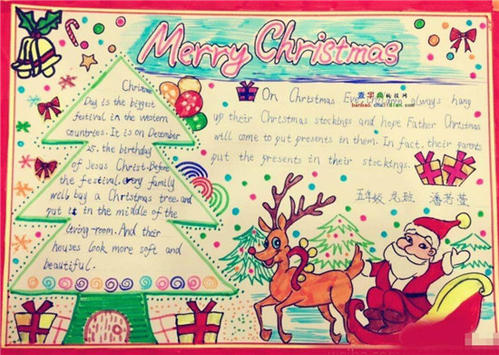 Merry Christmas
Christmas
Day is the biggest
festival in the western
countries. It is on December
25. the birthday
of Jesus Christ. Before
the festival, every family
will buy a Christmas tree. and
put it in the middle of the
living-room. And their
houses look more soft and
beautiful.
查字典
On Christmas Eve, always hang
up their Christmas stockings and hope Father Christmas
will come to put presents in them. In fact, their parents
put the presents in their stockings.
五年级 班 潘若萱